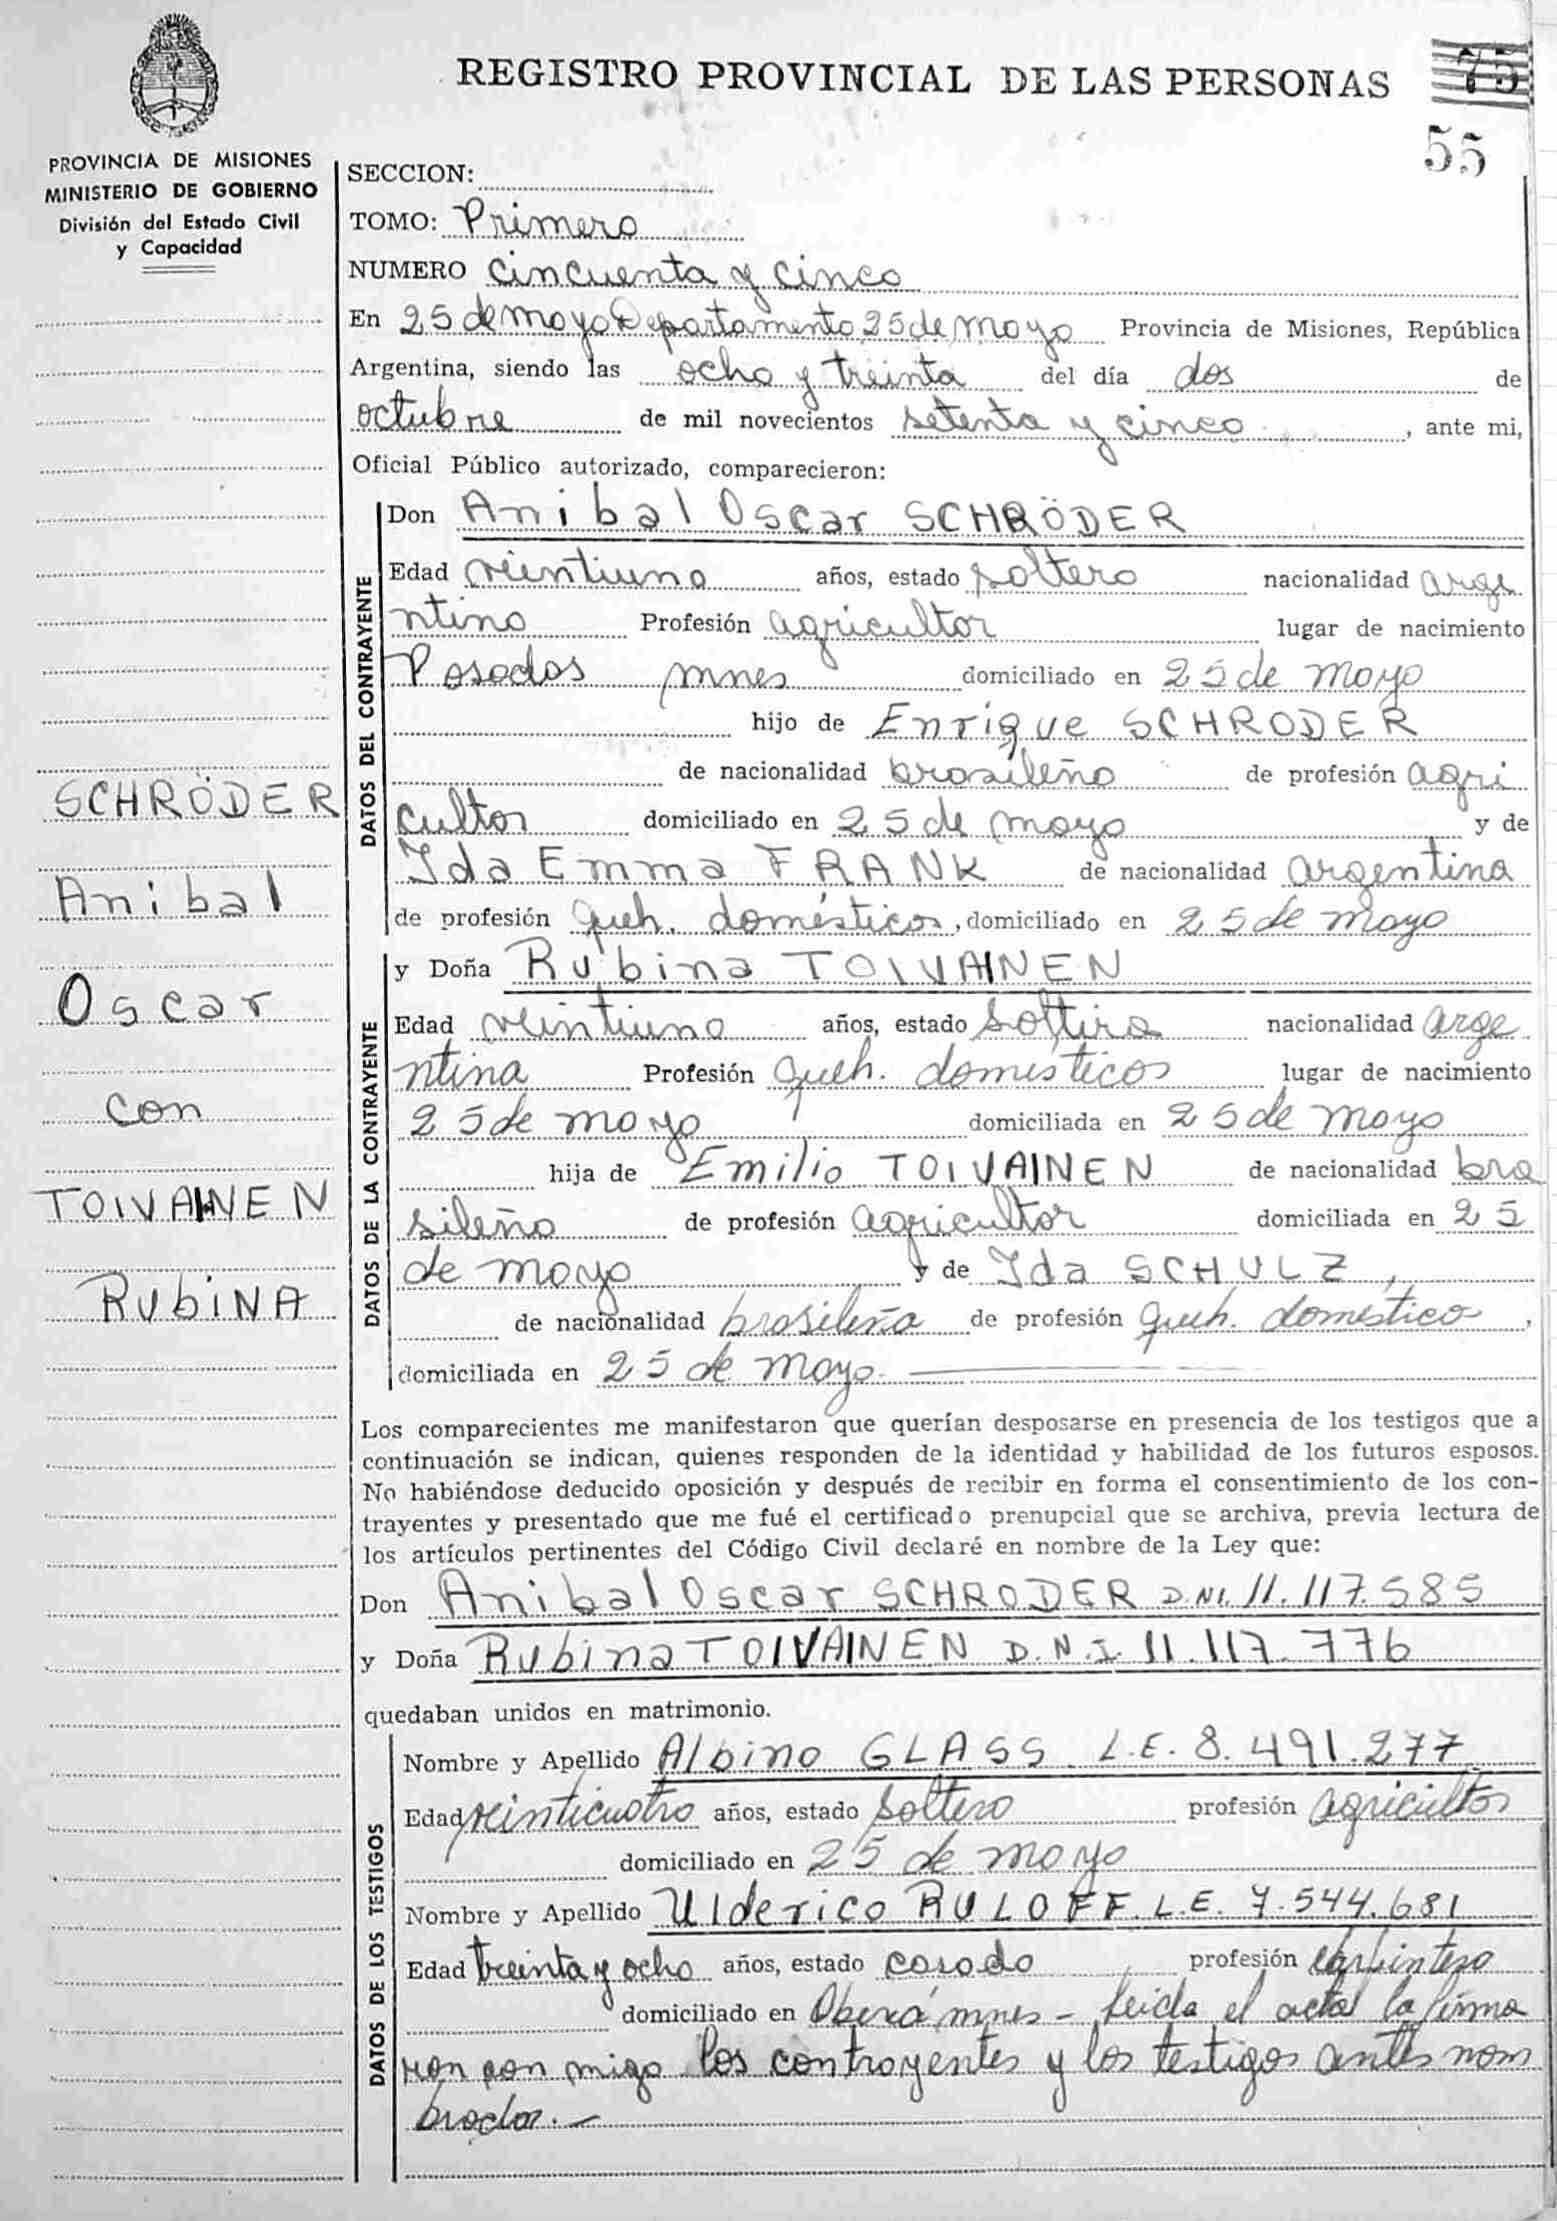 REGISTRO PROVINCIAL DE LAS PERSONAS
75
55
PROVINCIA DE MISIONES
MINISTERIO DE GOBIERNO
División del Estado Civil
y Capacidad
SCHRÖDER
Anibal
Oscar
con
TOIVAINEN
RUbiNA
SECCION:
TOMO: Primero
NUMERO cincuenta y cinco
En 25 de mayo Departamento 25 de mayo Provincia de Misiones, República
Argentina, siendo las ocho y treinta del día dos de
octubre de mil novecientos setenta y cinco, ante mi,
Oficial Público autorizado, comparecieron:
DATOS DEL CONTRAYENTE
Don Anibal Oscar SCHRÖDER
Edad veintiuno años, estado soltero nacionalidad arge
ntino Profesión agricultor lugar de nacimiento
Posadas mnes domiciliado en 25 de mayo
hijo de Enrique SCHRODER
de nacionalidad brasileño de profesión agri
cultor domiciliado en 25 de mayo y de
Ida Emma FRANK de nacionalidad argentina
de profesión queh. domésticos, domiciliado en 25 de mayo
DATOS DE LA CONTRAYENTE
y Doña Rubina TOIVAINEN
Edad veintiuno años, estado soltera nacionalidad arge
ntina Profesión queh. domésticos lugar de nacimiento
25 de mayo domiciliada en 25 de mayo
hija de Emilio TOIVAINEN de nacionalidad bra
sileño de profesión agricultor domiciliada en 25
de mayo y de Ida SCHULZ,
de nacionalidad brasileña de profesión queh. doméstico,
domiciliada en 25 de mayo.
Los comparecientes me manifestaron que querían desposarse en presencia de los testigos que a
continuación se indican, quienes responden de la identidad y habilidad de los futuros esposos.
No habiéndose deducido oposición y después de recibir en forma el consentimiento de los con-
trayentes y presentado que me fué el certificado prenupcial que se archiva, previa lectura de
los artículos pertinentes del Código Civil declaré en nombre de la Ley que:
Don Anibal Oscar SCHRODER D.NI. 11.117.585
y Doña Rubina TOIVAINEN D.N.I. 11.117.776
quedaban unidos en matrimonio.
DATOS DE LOS TESTIGOS
Nombre y Apellido Albino GLASS L.E. 8.491.277
Edad veinticuatro años, estado soltero profesión agricultor
domiciliado en 25 de mayo
Nombre y Apellido Ulderico RULOFF. L.E. 7.544.681
Edad treinta y ocho años, estado casado profesión carpintero
domiciliado en Oberá mnes - leida el acta la firma
ron con migo los contrayentes y los testigos antes nom
brados. -